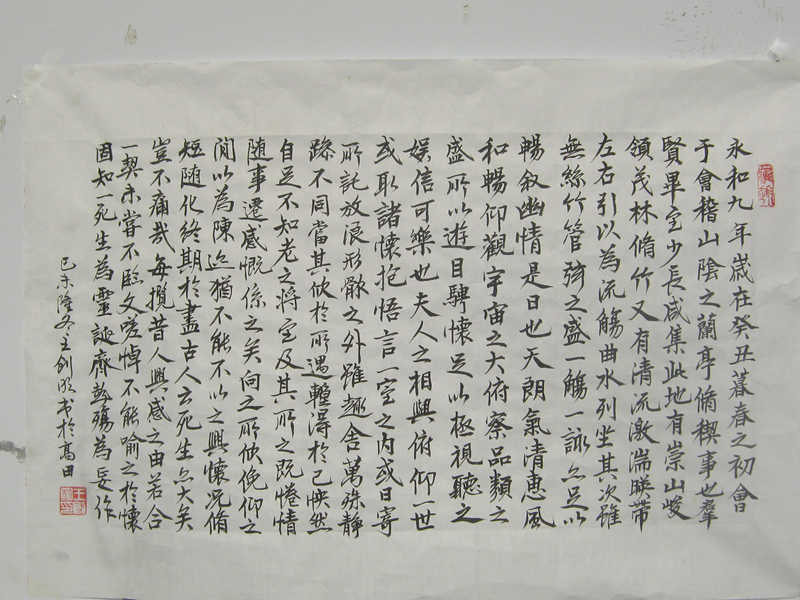 永和九年歲在癸丑暮春之初會
于會稽山陰之蘭亭脩禊事也羣
賢畢至少長咸集此地有崇山峻
領茂林脩竹又有清流激湍暎帶
左右引以為流觴曲水列坐其次雖
無絲竹管弦之盛一觴一詠亦足以
暢叙幽情是日也天朗氣清惠風
和暢仰觀宇宙之大俯察品類之
盛所以遊目騁懷足以極視聽之
娛信可樂也夫人之相與俯仰一世
或取諸懷抱悟言一室之內或因寄
所託放浪形骸之外雖趣舍萬殊靜
躁不同當其欣於所遇蹔得於己怏然
自足不知老之將至及其所之既惓情
隨事遷感慨係之矣向之所欣俛仰之
閒以為陳迹猶不能不以之興懷況脩
短隨化終期於盡古人云死生亦大矣
豈不痛哉每攬昔人興感之由若合
一契未嘗不臨文嗟悼不能喻之於懷
固知一死生為虛誕齊彭殤為妄作
己未隆冬王剑明书於高田